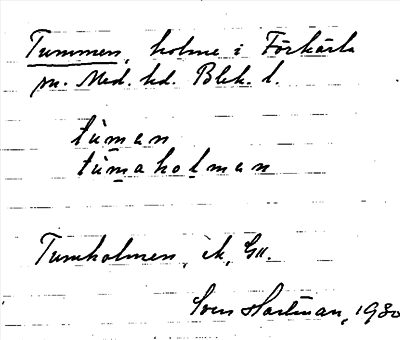 Tummen, holme i Förkärla
sn. Med. hd. Blek. l.
tùman
tùmaholman
Tumholmen, ek, GK.
Sven Hartman, 1930